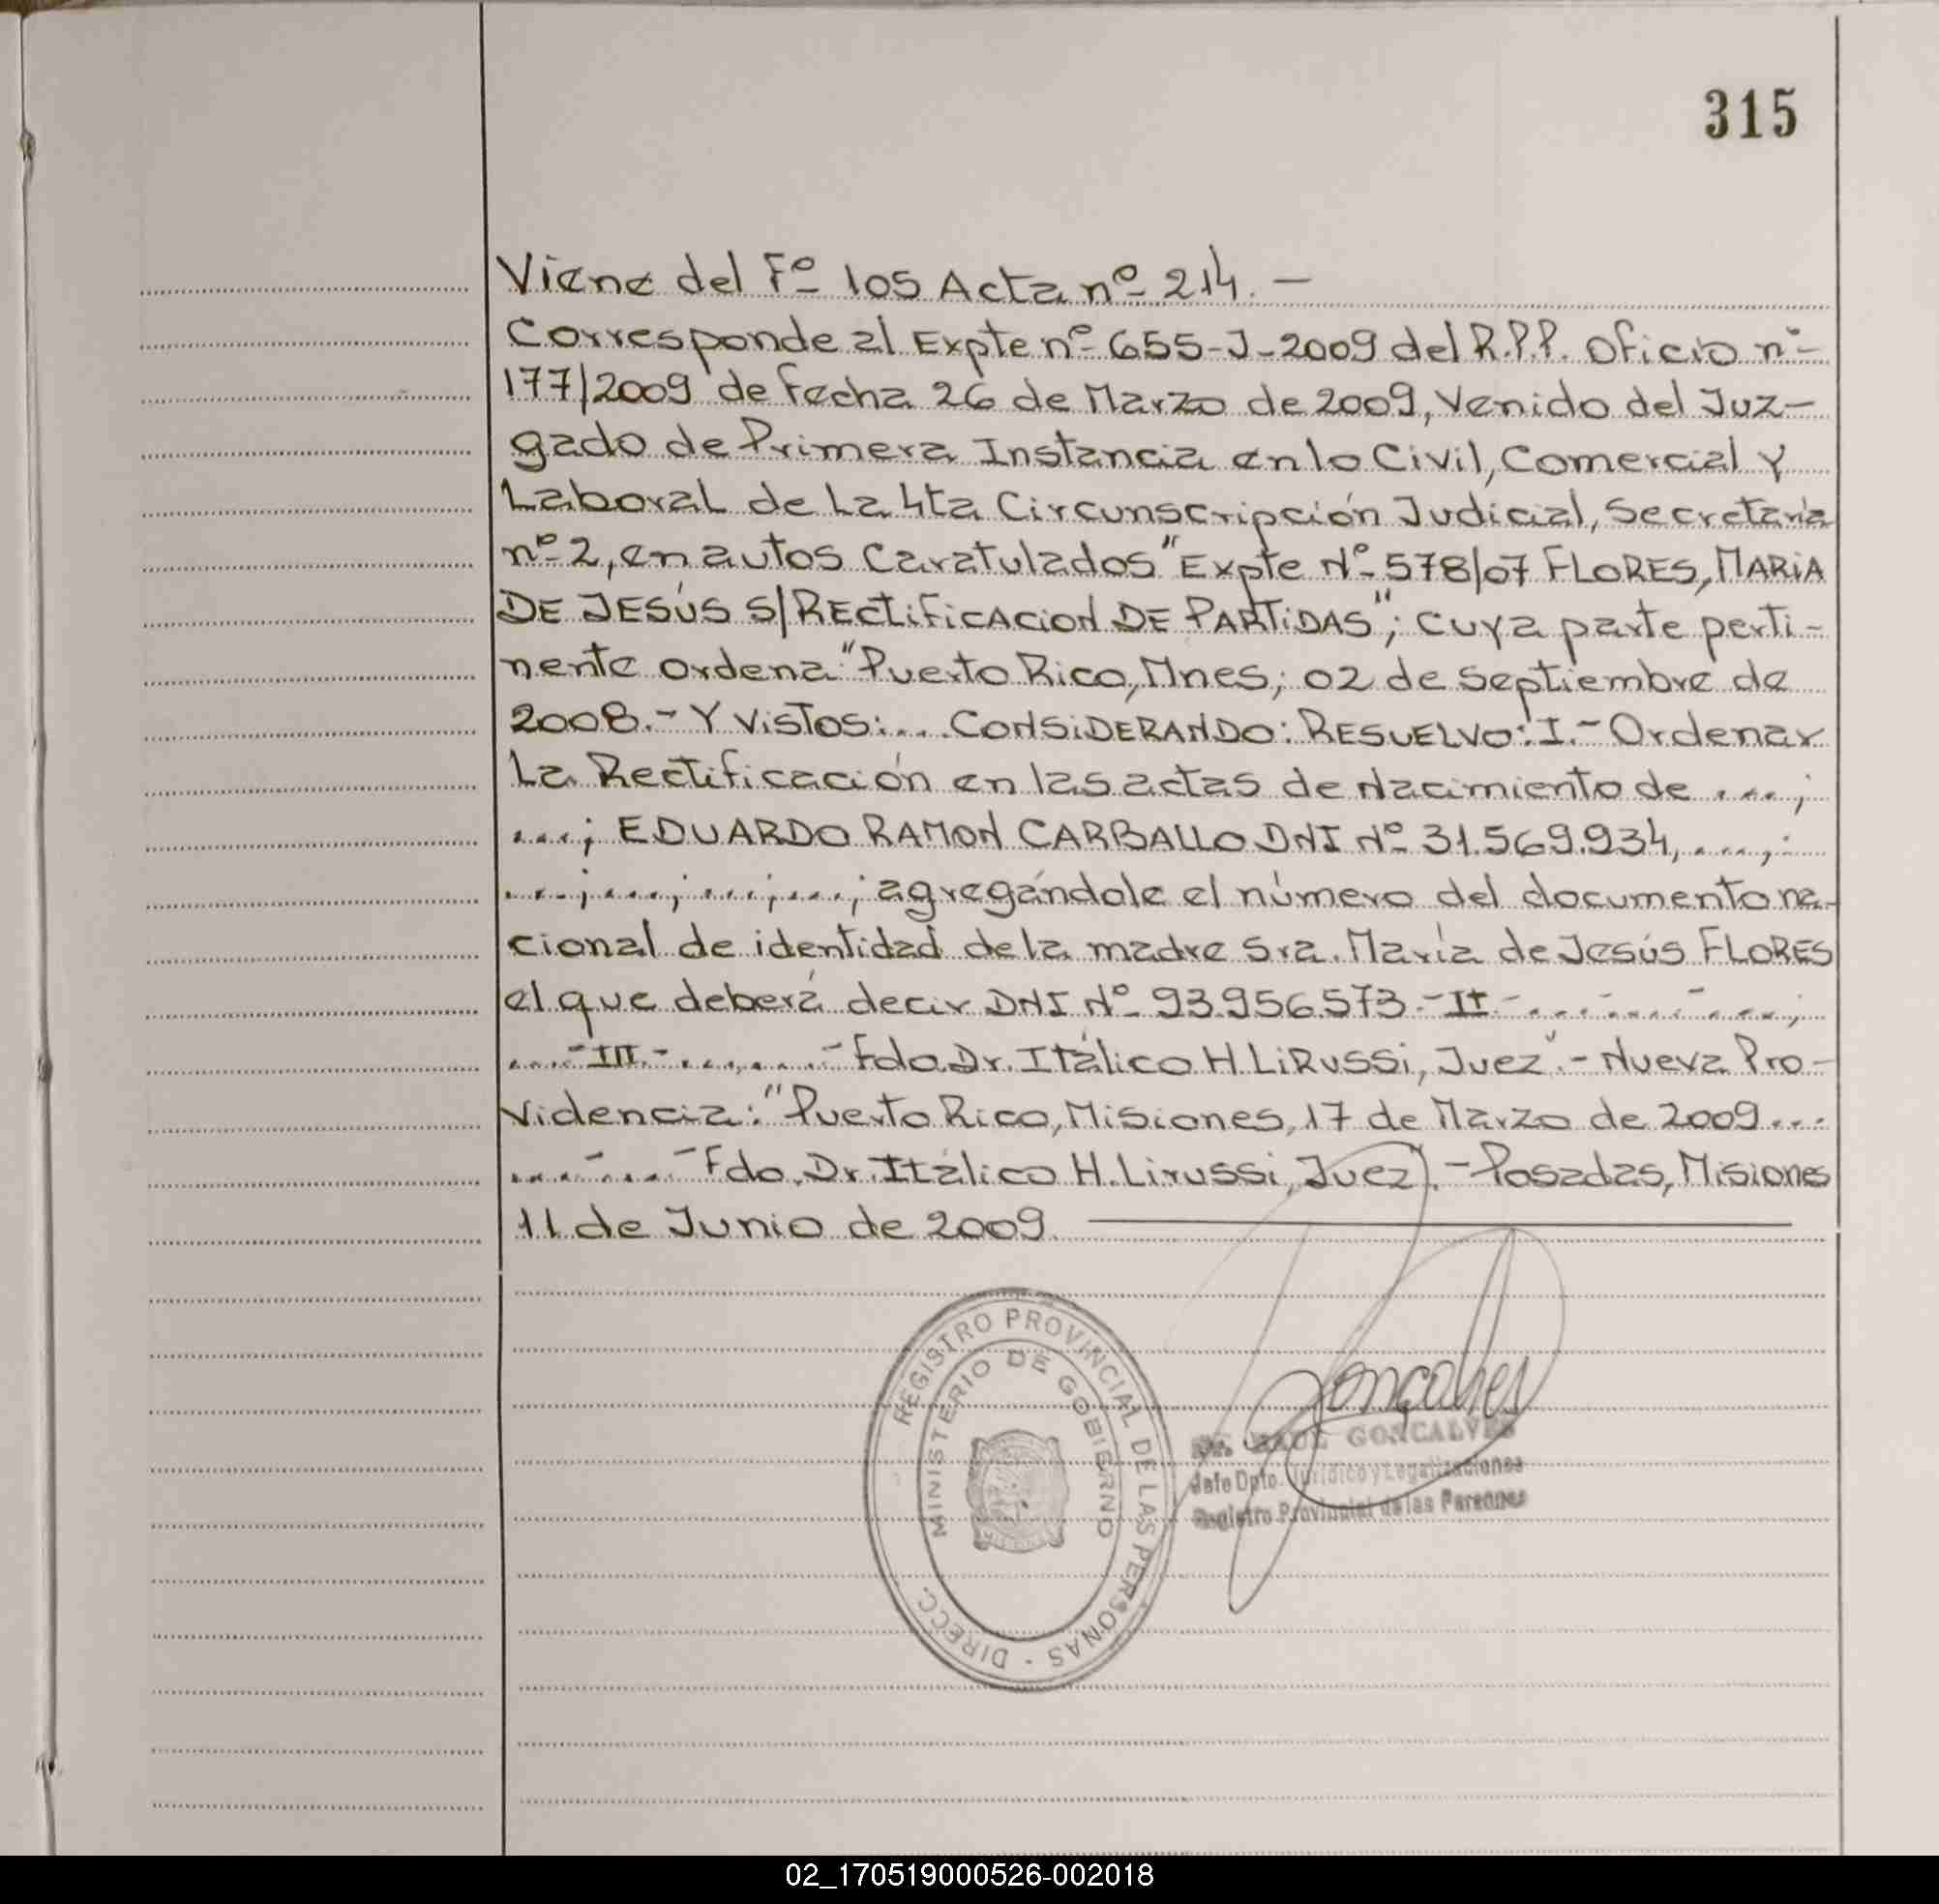 315
Viene del Fº 105 Acta nº 214. —
Corresponde al Expte nº 655-J-2009 del R.P.P. Oficio nº
177/2009 de fecha 26 de Marzo de 2009, Venido del Juz-
gado de Primera Instancia en lo Civil, Comercial y
Laboral de La 4ta Circunscripción Judicial, Secretaría
nº 2, en autos Caratulados "Expte Nº 578/07 FLORES, MARiA
DE JESÚS S/RECTiFiCACiON DE PARTiDAS"; Cuya parte perti-
nente ordena "Puerto Rico, Mnes; 02 de Septiembre de
2008.- Y ViSTOS:.... CONSiDERANDO: RESUELVO: I.- Ordenar
La Rectificación en las actas de Nacimiento de ....;
....; EDUARDO RAMON CARBALLO DNI Nº 31.569.934, ....;
....;....;....;....; agregándole el número del documento na-
cional de identidad de la madre Sra. María de Jesús FLORES
el que deberá decir DNI Nº 93.956.573.- II - ............;
....- III.- ........- Fdo. Dr. Itálico H. LiRussi, Juez".- Nueva Pro-
videncia: "Puerto Rico, Misiones, 17 de Marzo de 2009...
........- Fdo. Dr. Itálico H. Lirussi, Juez).- Posadas, Misiones
11 de Junio de 2009.
REGISTRO PROVINCIAL DE LAS PERSONAS - DIRECC.
MINISTERIO DE GOBIERNO
Gonçalves
RAUL GONCALVES
Jefe Dpto. Jurídico y Legalizaciones
Registro Provincial de las Personas
02_170519000526-002018